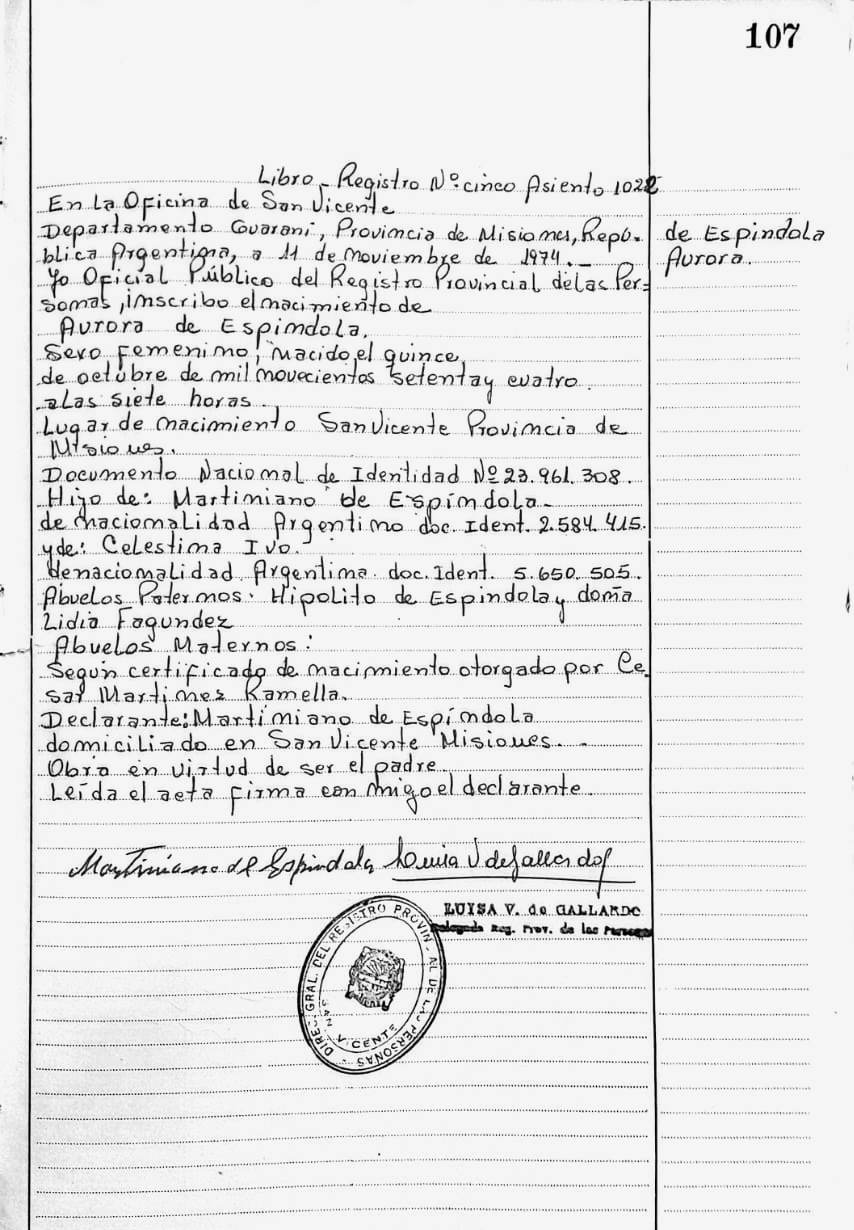 107
Libro - Registro Nº cinco Asiento 1022
En La Oficina de San Vicente
Departamento Guaraní, Provincia de Misiones, Repú-
blica Argentina, a 11 de noviembre de 1974.-
Yo Oficial Público del Registro Provincial de las Per=
sonas, inscribo el nacimiento de
Aurora de Espindola.
Sexo femenino, nacido el quince
de octubre de mil novecientos setenta y cuatro.
a las siete horas.
Lugar de nacimiento San Vicente Provincia de
Misiones.
Documento Nacional de Identidad Nº 23.961.308.
Hijo de: Martiniano de Espíndola.
de nacionalidad Argentino doc. Ident. 2.584.415.
y de: Celestina Ivo.
de nacionalidad Argentina. doc. Ident. 5.650.505.
Abuelos Paternos: Hipolito de Espindola y doña
Lidia Fagundez
Abuelos Maternos:
Según certificado de nacimiento otorgado por Ce
sar Martinez Ramella.
Declarante: Martiniano de Espíndola
domiciliado en San Vicente Misiones. -
Obra en virtud de ser el padre
Leída el acta firma conmigo el declarante.
de Espindola
Aurora.
Martiniano de Espindola Luisa V de Gallardo
LUISA V. de GALLARDO
Delegada Reg. Prov. de las Personas
DIREC. GRAL. DEL REGISTRO PROVIN. AL DE LAS PERSONAS
SAN VICENTE